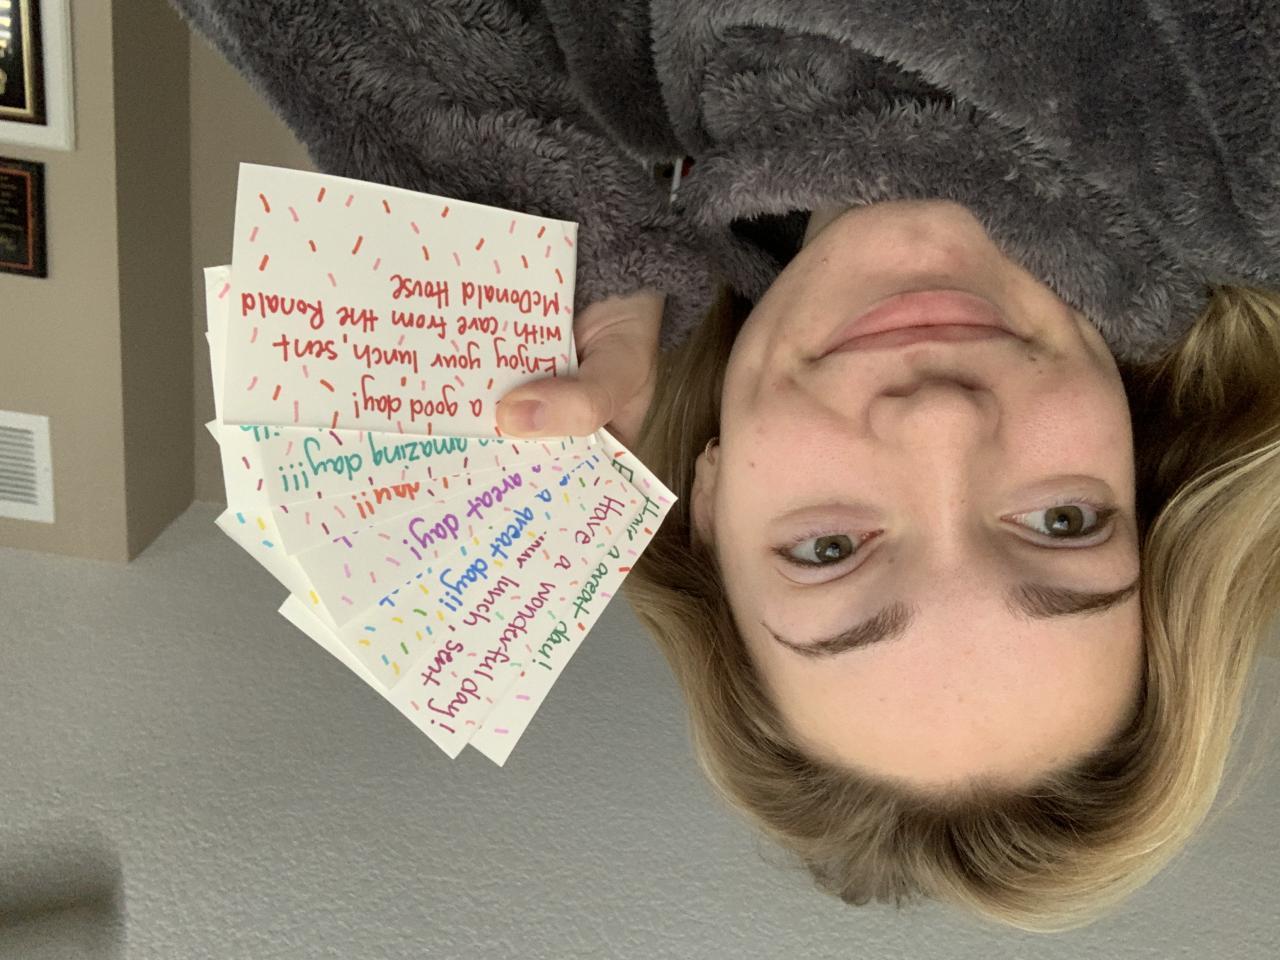 a good day!
Enjoy your lunch, sent
with care from the Ronald
McDonald House
amazing day!!!
day!!
a great day!
a great day!!
Have a wonderful day!
lunch, sent
Have a great day!